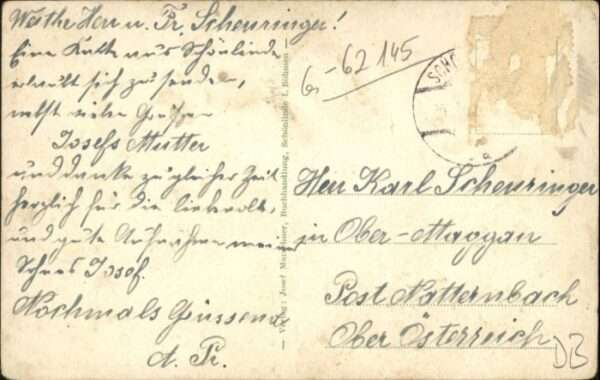 Werthe Herr u. Fr. Scheuringer!
Eine Karte aus Schönlinde
erlaubt sich zu senden,
nebst vielen Grüßen
Josefs Mutter
und danke zugleicher Zeit
herzlich für die liebevolle,
und gute Aufnahme meines
Sohnes Josef.
Nochmals Grüssend
A. Pr.
Verlag: Josef Buchhandlung, Schönlinde i. Böhmen
6-62145
SCHÖ
Herr Karl Scheuringer
in Ober-Maggau
Post Natternbach
Ober Österreich
DB